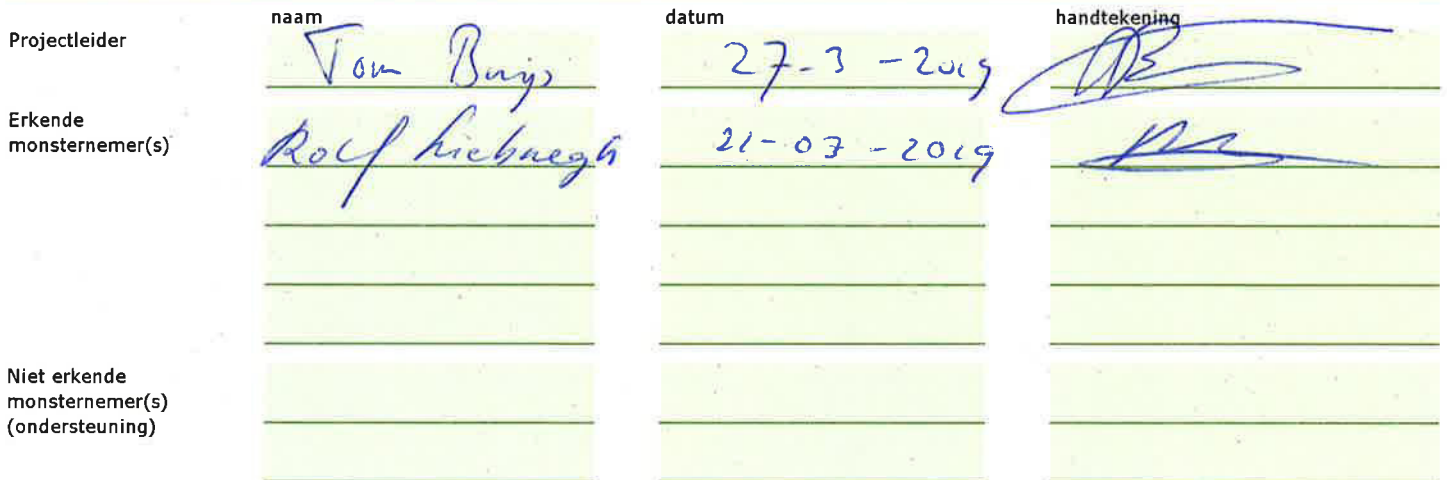 naam datum handtekening
Projectleider Tom Buijs 27-3-2019
Erkende
monsternemer(s) Rolf 21-03-2019
Niet erkende
monsternemer(s)
(ondersteuning)